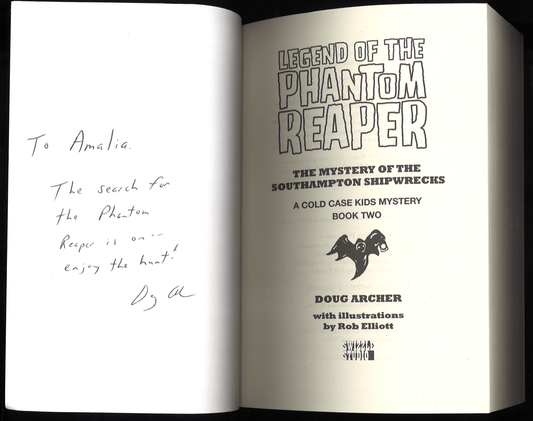 To Amalia.
The search for
the Phantom
Reaper is on--
enjoy the hunt!
LEGEND OF THE
PHANTOM
REAPER
THE MYSTERY OF THE
SOUTHAMPTON SHIPWRECKS
A COLD CASE KIDS MYSTERY
BOOK TWO
DOUG ARCHER
with illustrations
by Rob Elliott
SWIZZLE
STUDIO